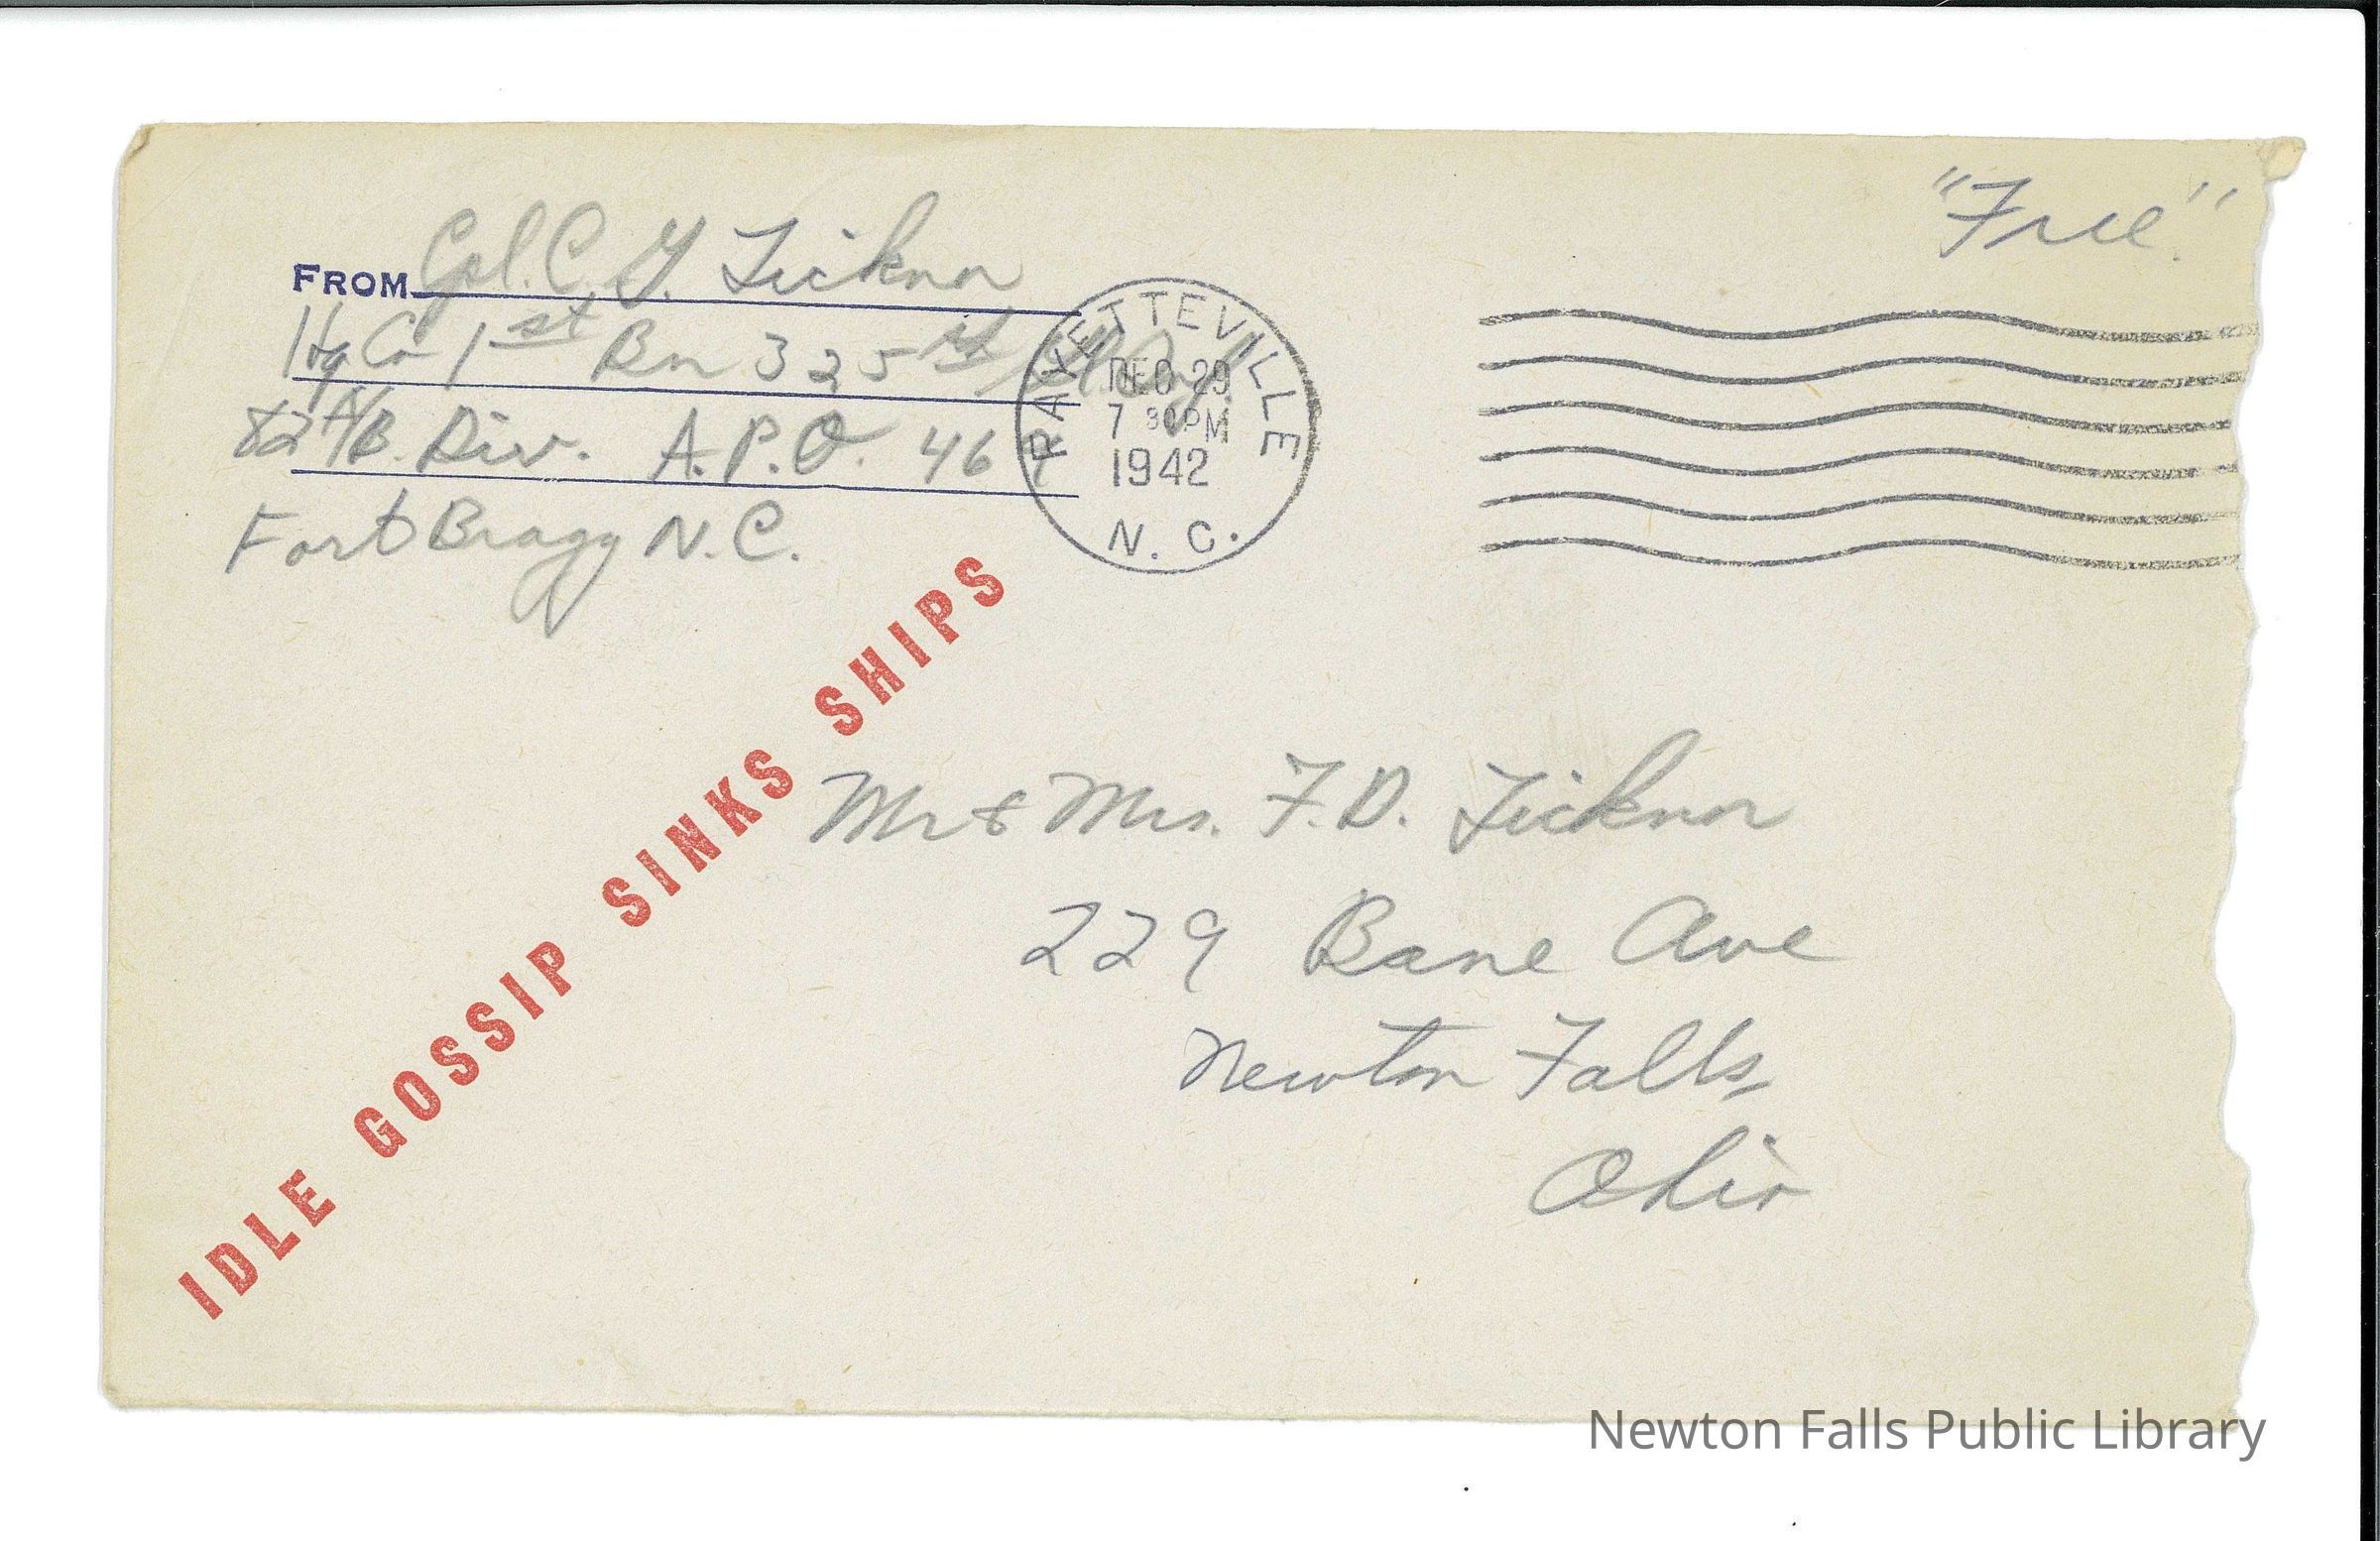 "Free"
FROM Cpl. C. Y. Ticknor
Hq Co 1st Bn 325
82 A/B. Div. A.P.O. 469
Fort Bragg N.C.
FAYETTEVILLE
DEC 29
7 30PM
1942
N. C.
IDLE GOSSIP SINKS SHIPS
Mr & Mrs. F. D. Ticknor
229 Bane Ave
Newton Falls,
Ohio
Newton Falls Public Library